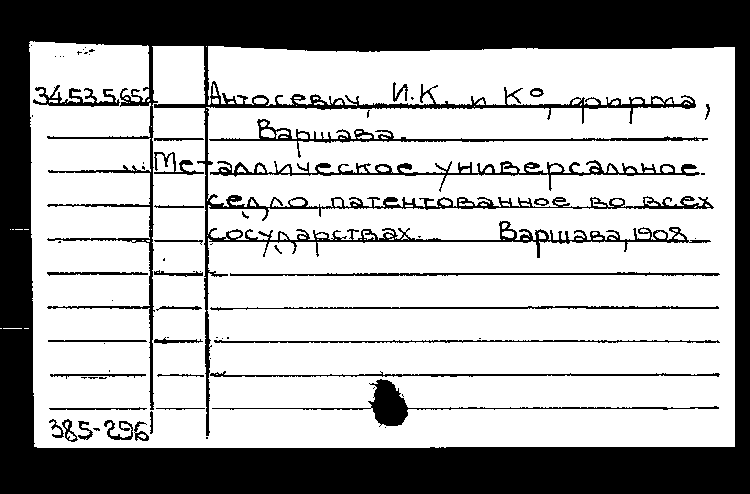 34.53.5.652 Антосевич, И.К. и К°, фирма,
Варшава.
...Металлическое универсальное
седло, патентованное во всех
государствах. Варшава, 1908
385-296